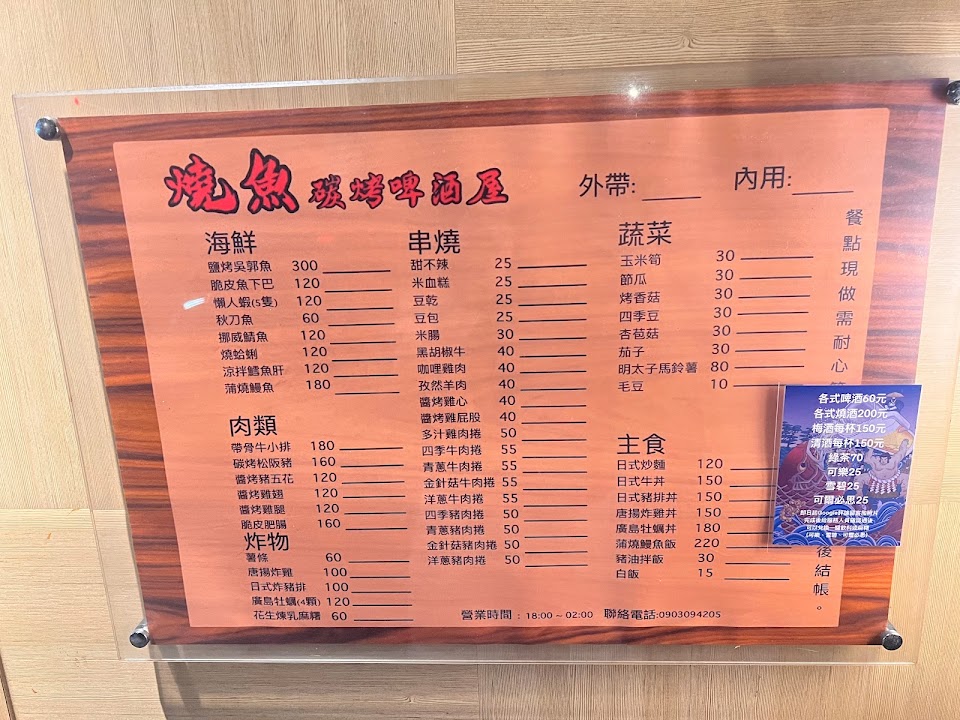 燒魚 碳烤啤酒屋
外帶:
內用:
海鮮
鹽烤吳郭魚 300
脆皮魚下巴 120
懶人蝦(5隻) 120
秋刀魚 60
挪威鯖魚 120
燒蛤蜊 120
涼拌鱈魚肝 120
蒲燒鰻魚 180
肉類
帶骨牛小排 180
碳烤松阪豬 160
醬烤豬五花 120
醬烤雞翅 120
醬烤雞腿 120
脆皮肥腸 160
炸物
薯條 60
唐揚炸雞 100
日式炸豬排 100
廣島牡蠣(4顆) 120
花生煉乳麻糬 60
串燒
甜不辣 25
米血糕 25
豆乾 25
豆包 25
米腸 30
黑胡椒牛 40
咖哩雞肉 40
孜然羊肉 40
醬烤雞心 40
醬烤雞屁股 40
多汁雞肉捲 50
四季牛肉捲 55
青蔥牛肉捲 55
金針菇牛肉捲 55
洋蔥牛肉捲 55
四季豬肉捲 50
青蔥豬肉捲 50
金針菇豬肉捲 50
洋蔥豬肉捲 50
蔬菜
玉米筍 30
節瓜 30
烤香菇 30
四季豆 30
杏苞菇 30
茄子 30
明太子馬鈴薯 80
毛豆 10
主食
日式炒麵 120
日式牛丼 150
日式豬排丼 150
唐揚炸雞丼 150
廣島牡蠣丼 180
蒲燒鰻魚飯 220
豬油拌飯 30
白飯 15
餐點現做需耐心
後結帳。
各式啤酒60元
各式燒酒200元
梅酒每杯150元
清酒每杯150元
綠茶70
可樂25
雪碧25
可爾必思25
營業時間:18:00~02:00 聯絡電話:0903094205